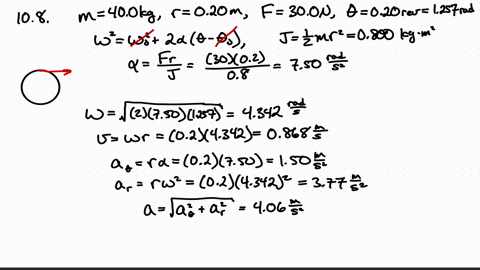 10.8. m = 40.0 kg, r = 0.20 m, F = 30.0 N, θ = 0.20 rev = 1.257 rad
ω² = ω₀² + 2α(θ - θ₀), J = ½mr² = 0.800 kg·m²
α = Fr/J = (30)(0.2)/0.8 = 7.50 rad/s²
ω = √(2)(7.50)(1.257) = 4.342 rad/s
v = ωr = (0.2)(4.342) = 0.868 m/s
a_θ = rα = (0.2)(7.50) = 1.50 m/s²
a_r = rω² = (0.2)(4.342)² = 3.77 m/s²
a = √a_θ² + a_r² = 4.06 m/s²